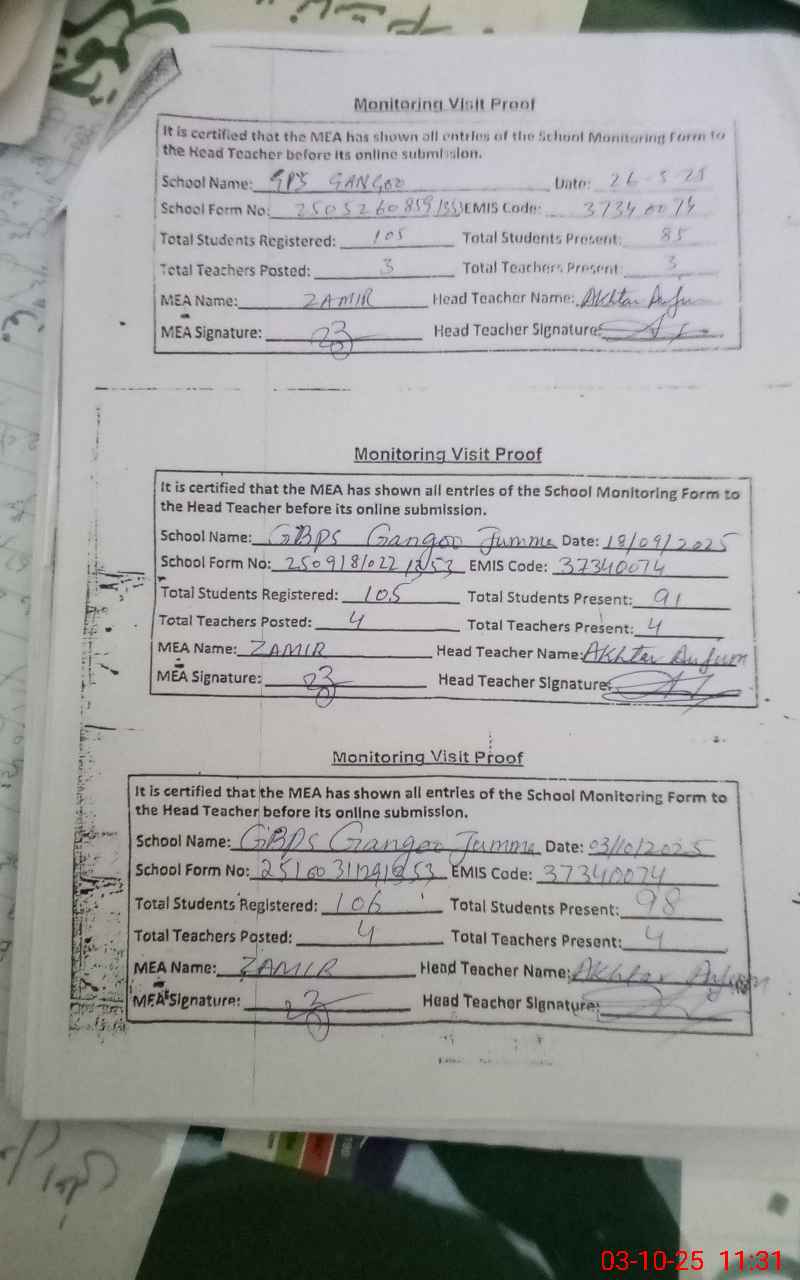 Monitoring Visit Proof
It is certified that the MEA has shown all entries of the School Monitoring Form to
the Head Teacher before its online submission.
School Name: GPS GANGOO Date: 26-5-25
School Form No: EMIS Code: 37340074
Total Students Registered: 105 Total Students Present: 85
Total Teachers Posted: 3 Total Teachers Present: 3
MEA Name: ZAMIR Head Teacher Name: Akhtar Anjum
MEA Signature: Head Teacher Signature:
Monitoring Visit Proof
It is certified that the MEA has shown all entries of the School Monitoring Form to
the Head Teacher before its online submission.
School Name: GBPS Gangoo Jumma Date: 18/09/2025
School Form No: EMIS Code: 37340074
Total Students Registered: 105 Total Students Present: 91
Total Teachers Posted: 4 Total Teachers Present: 4
MEA Name: ZAMIR Head Teacher Name: Akhtar Anjum
MEA Signature: Head Teacher Signature:
Monitoring Visit Proof
It is certified that the MEA has shown all entries of the School Monitoring Form to
the Head Teacher before its online submission.
School Name: GBPS Gangoo Jumma Date: 03/10/2025
School Form No: EMIS Code: 37340074
Total Students Registered: 106 Total Students Present: 98
Total Teachers Posted: 4 Total Teachers Present: 4
MEA Name: ZAMIR Head Teacher Name: Akhtar Anjum
MEA Signature: Head Teacher Signature:
03-10-25 11:31